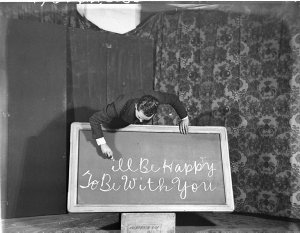 I'll Be Happy
To Be With You